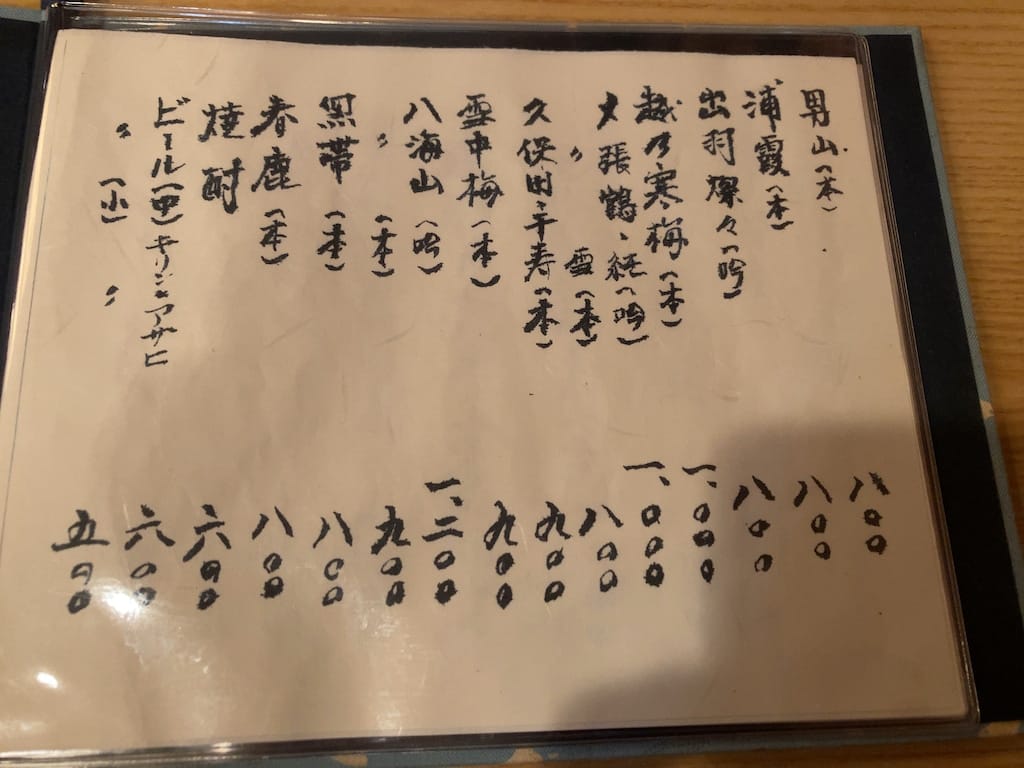 男山(本) 八〇〇
浦霞(本) 八〇〇
出羽燦々(吟) 八〇〇
越乃寒梅(本) 一、〇〇〇
〆張鶴、純(吟) 一、〇〇〇
〃 雪(本) 八〇〇
久保田、千寿(本) 九〇〇
雪中梅(本) 九〇〇
八海山(吟) 一、二〇〇
〃 (本) 九〇〇
黒帯(本) 八〇〇
春鹿(本) 八〇〇
焼酎 六〇〇
ビール(中)キリンとアサヒ 六〇〇
〃 (小) 〃 五〇〇